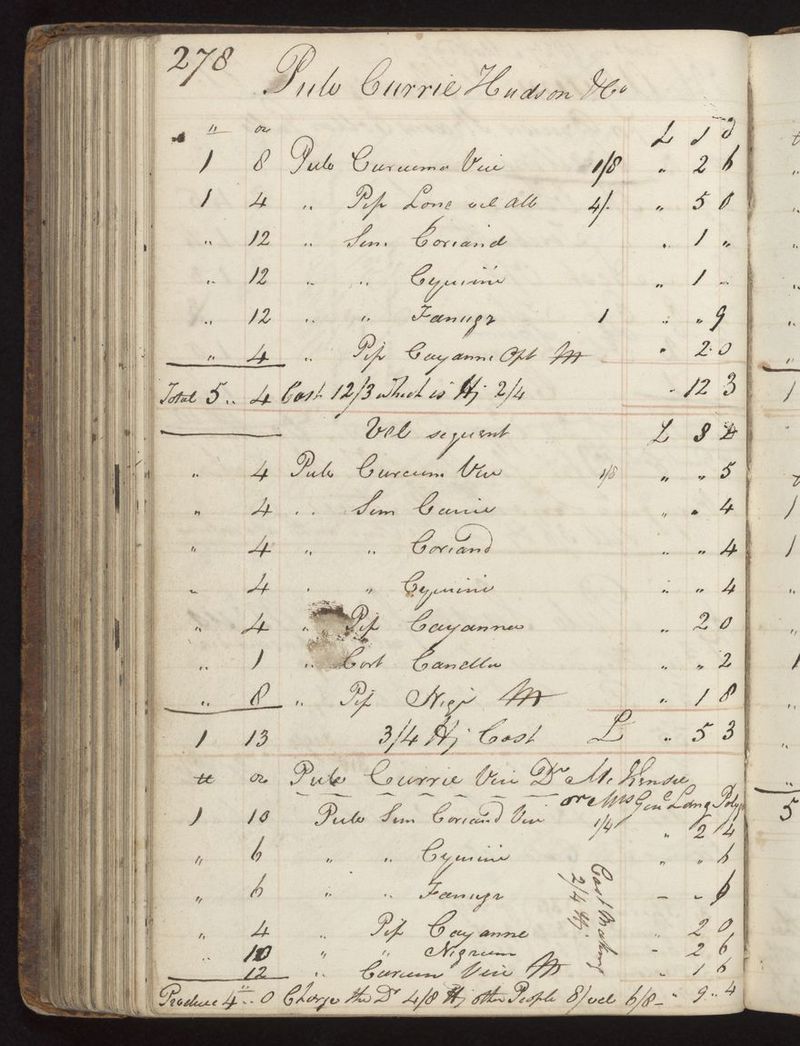 278
Pulv Currie Hudson & Co
" oz £ s d
1 8 Pulv Curcumæ Ver 1/8 " 2 6
1 4 " Pip Long vel Alb 4/- " 5 0
" 12 " Sem Coriand " 1 "
" 12 " " Cymini " 1 "
" 12 " " Fænugr 1 " " 9
" 4 " Pip Cayanne Opt M " 2 0
Total 5 " 4 Cost 12/3 which is ℔j 2/4 " 12 3
Vel sequent £ s d
" 4 Pulv Curcum Ver 1/8 " " 5
" 4 " Sem Carui " " 4
" 4 " " Coriand " " 4
" 4 " " Cymini " " 4
" 4 " Pip Cayanne " 2 0
" 1 " Cort Canella " " 2
" 8 " Pip Nigr M " 1 8
1 13 3/4 ℔j Cost £ " 5 3
℔ oz Pulv Currie Ver Dr Mc Kensie
or Mrs Genl
1 10 Pulv Sem Coriand Ver 1/4 " 2 4
" 6 " " Cymini " " 6
" 6 " " Fænugr - " 6
" 4 " Pip Cayanne 2 0
" 10 " " Nigrum - 2 6
12 " Curcum Ver M " 1 6
Cost Making
2/4 ℔j
Produce 4 " 0 Charge the Dr 4/8 ℔j other People 8/ vel 6/8 - " 9 " 4
5